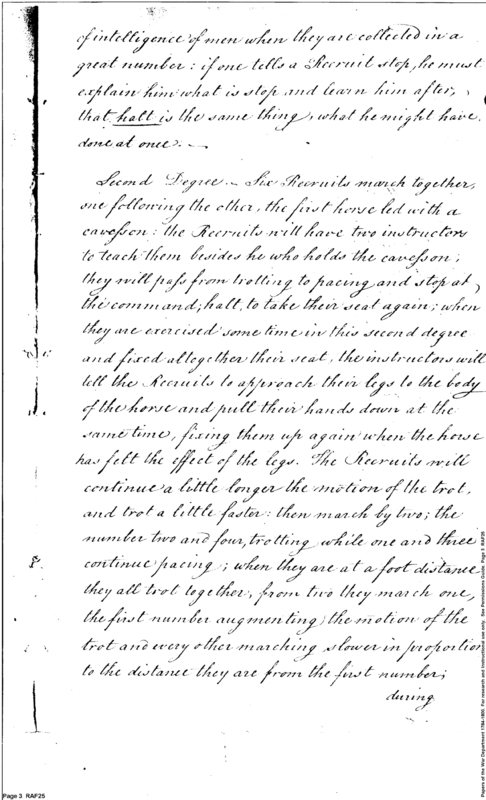 of intelligence of men when they are collected in a
great number: if one tells a Recruit stop, he must
explain him what is stop and learn him after,
that, halt is the same thing, what he might have
done at once. —
Second Degree — Six Recruits march together,
one following the other, the first horse led with a
cavesson: the Recruits will have two instructors
to teach them besides he who holds the cavesson;
they will pass from trotting to pacing and stop at
the command, halt, to take their seat again; when
they are exercised some time in this second degree
and fixed altegether their seat, the instructors will
tell the Recruits to approach their legs to the body
of the horse and pull their hands down at the
same time, fixing them up again when the horse
has felt the effect of the legs. The Recruits will
continue a little longer the motion of the trot,
and trot a little faster: then march by two; the
number two and four, trotting while one and three
continue pacing; when they are at a foot distance
they all trot together, from two they march one,
the first number augmenting the motion of the
trot and every other marching slower in proportion
to the distance they are from the first number;
during
Page 3 RAF25
Papers of the War Department 1784-1800. For research and instructional use only. See Permissions Guide. Page 3 RAF25